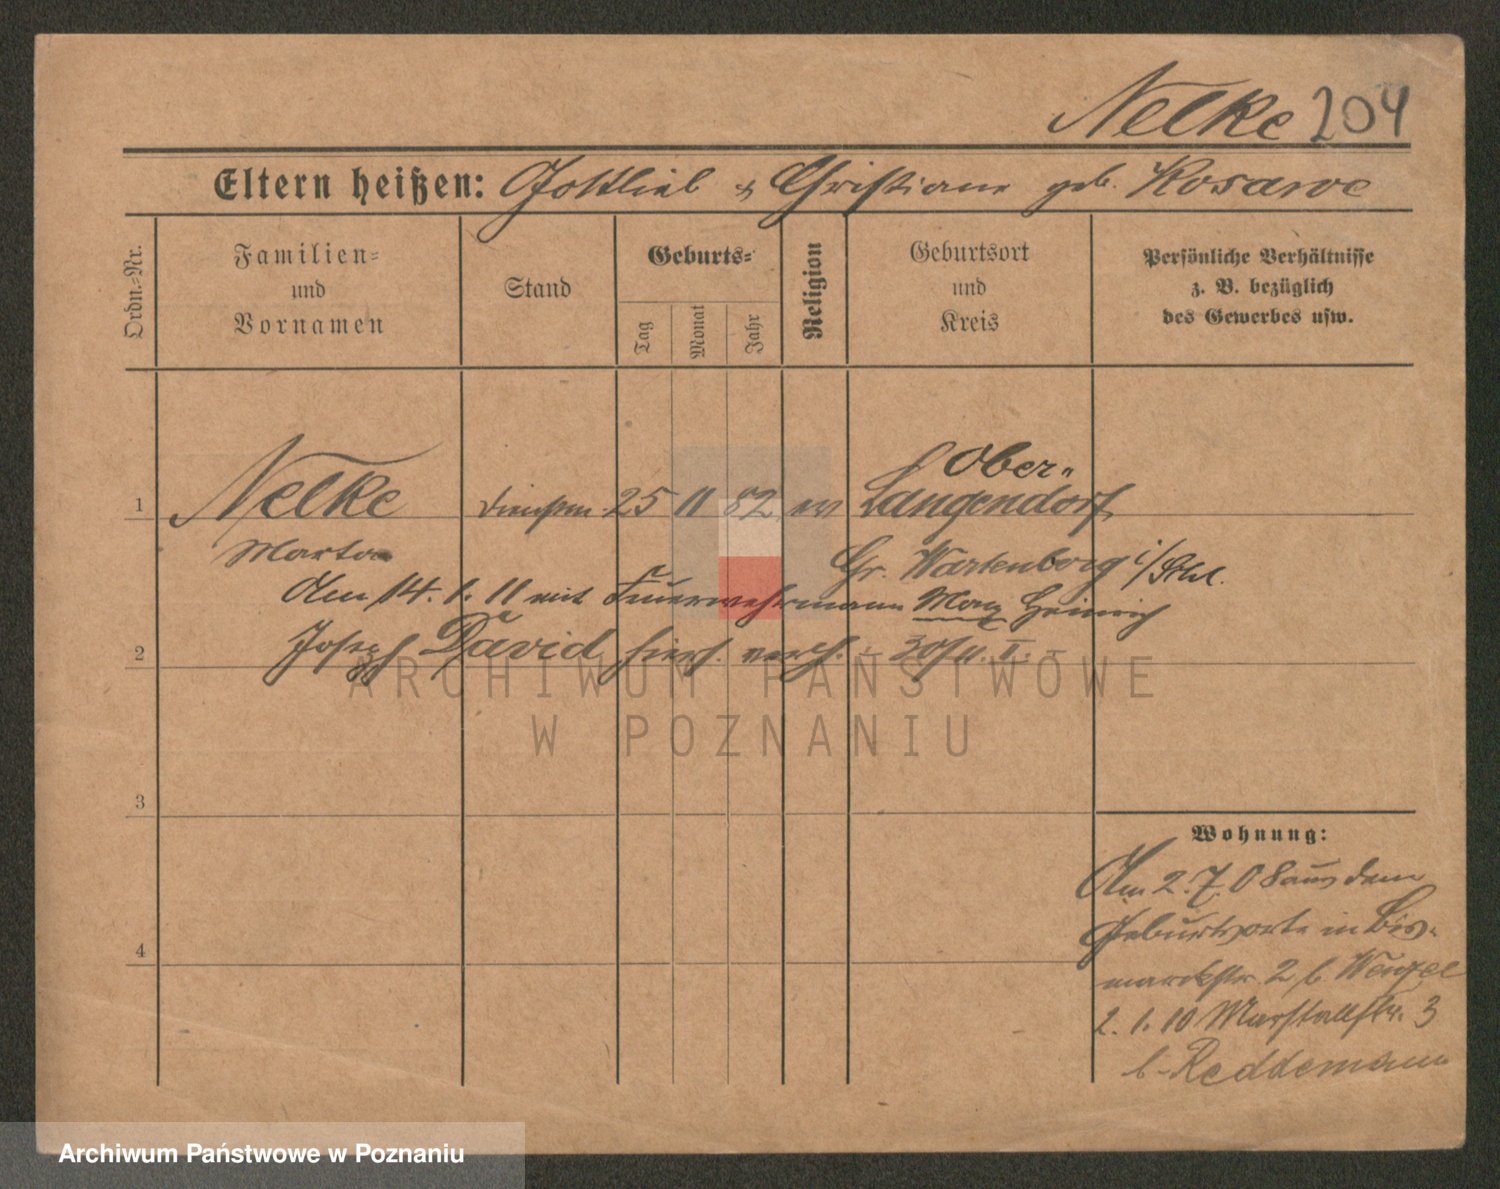 Nelke 204
Eltern heißen: Gottlieb & Christiane geb. Kosawe
Ordn.-Nr.
Familien-
und
Vornamen
Stand
Geburts-
Tag
Monat
Jahr
Religion
Geburtsort
und
Kreis
Persönliche Verhältnisse
z. B. bezüglich
des Gewerbes usw.
Ober-
1 Nelke 25 11 82 ev Langendorf
Marta Gr. Wartenberg i/Schl.
Am 14. 1. 11 mit Feuerwehrmann Max Heinrich
2 Joseph David hiers. verh.
ARCHIWUM PAŃSTWOWE
W POZNANIU
3
Wohnung:
Am 2. 7. 08 aus dem
Geburtsorte in Bis-
4
marckstr 2 b Wenzel
2. 1. 10 Marstallstr. 3
b- Reddemann
Archiwum Państwowe w Poznaniu